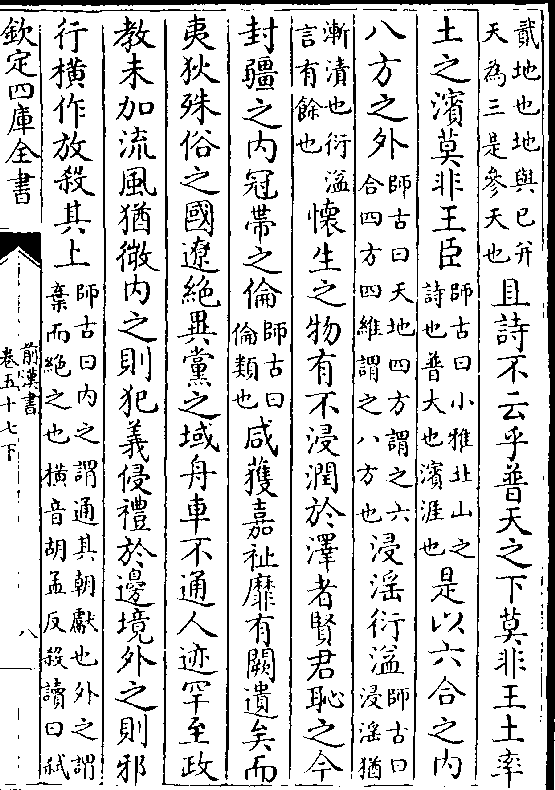 貳地也地與已并天為三是參天也且詩不云乎普天之下莫非王土率
土之濱莫非王臣師古曰小雅北山之詩也普大也濱涯也是以六合之内
八方之外師古曰天地四方謂之六合四方四維謂之八方也浸淫衍溢師古曰浸淫猶
漸漬也衍溢言有餘也懷生之物有不浸潤於澤者賢君恥之今
封疆之内冠帶之倫師古曰倫類也咸獲嘉祉靡有闕遺矣而
夷狄殊俗之國遼絕異黨之域舟車不通人迹罕至政
教未加流風猶微内之則犯義侵禮於邊境外之則邪
行橫作放殺其上師古曰内之謂通其朝獻也外之謂棄而絕之也橫音胡孟反殺讀曰弑
欽定四庫全書
前漢書
卷五十七下
八